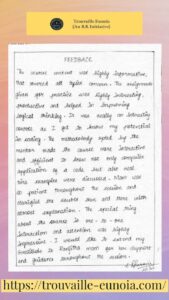 Trouvaille Eunoia
(An R.R Initiative)
FEEDBACK
The course content was highly informative,
that covered all topics concern. The assignments
given for practice was highly interesting,
productive and helped in improving
logical thinking. It was really an intensity
course as I got to know my potential
in coding. The methodology opted by the
mentor made the course more interactive
and efficient to know not only computer
application of a code but also real
time examples were discussed. Mam was
so patient throughout the session and
clarified the neutral and time with
utmost explanation. The special thing
about the course is one-to-one
interaction and attention was highly
impressive. I would like to extend my
gratitude to Ranjitha mam for her support
and guidance throughout the session.
https://trouvaille-eunoia.com/